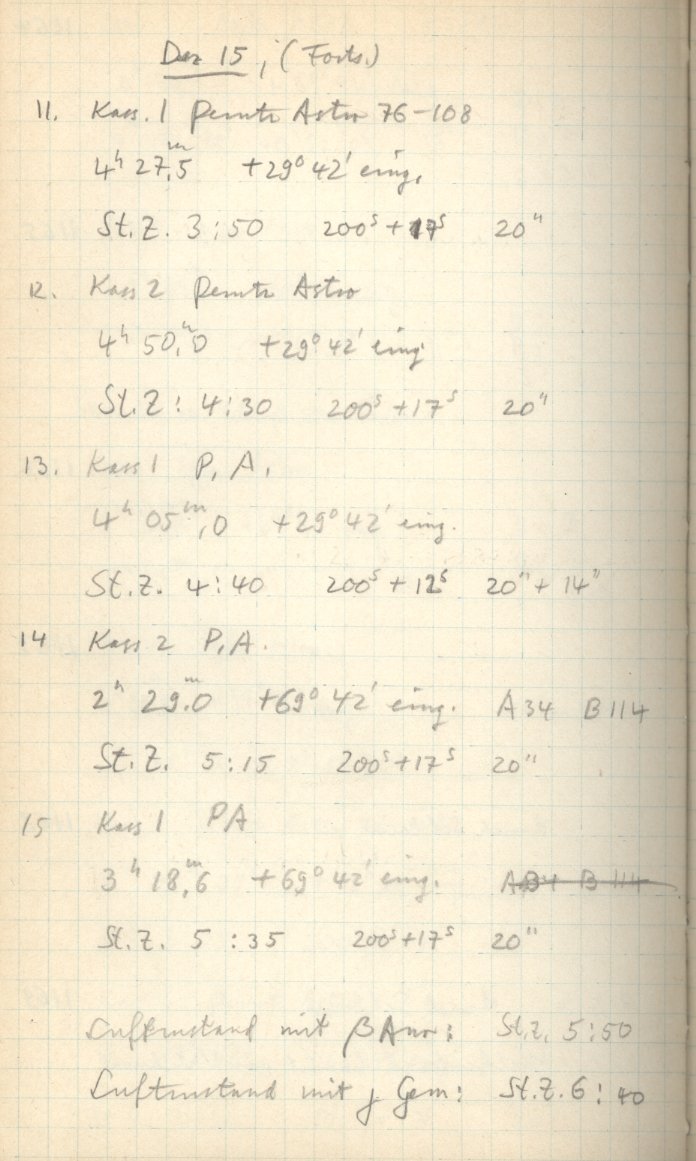 Dez 15, (Forts.)
11. Kass. 1 Perutz Astro 76-108
4ʰ 27ᵐ,5 +29° 42' eing.
St.Z. 3:50 200ˢ + 17ˢ 20"
12. Kass 2 Perutz Astro
4ʰ 50ᵐ,0 +29° 42' eing
St.Z: 4:30 200ˢ + 17ˢ 20"
13. Kass 1 P. A.
4ʰ 05ᵐ,0 +29° 42' eing.
St.Z. 4:40 200ˢ + 12ˢ 20" + 14"
14 Kass 2 P.A.
2ʰ 29ᵐ.0 +69° 42' eing. A34 B114
St.Z. 5:15 200ˢ+17ˢ 20"
15 Kass 1 PA
3ʰ 18ᵐ,6 +69° 42' eing. A34 B 114
St.Z. 5:35 200ˢ+17ˢ 20"
Luftzustand mit β Aur: St.Z. 5:50
Luftzustand mit γ Gem: St.Z. 6:40